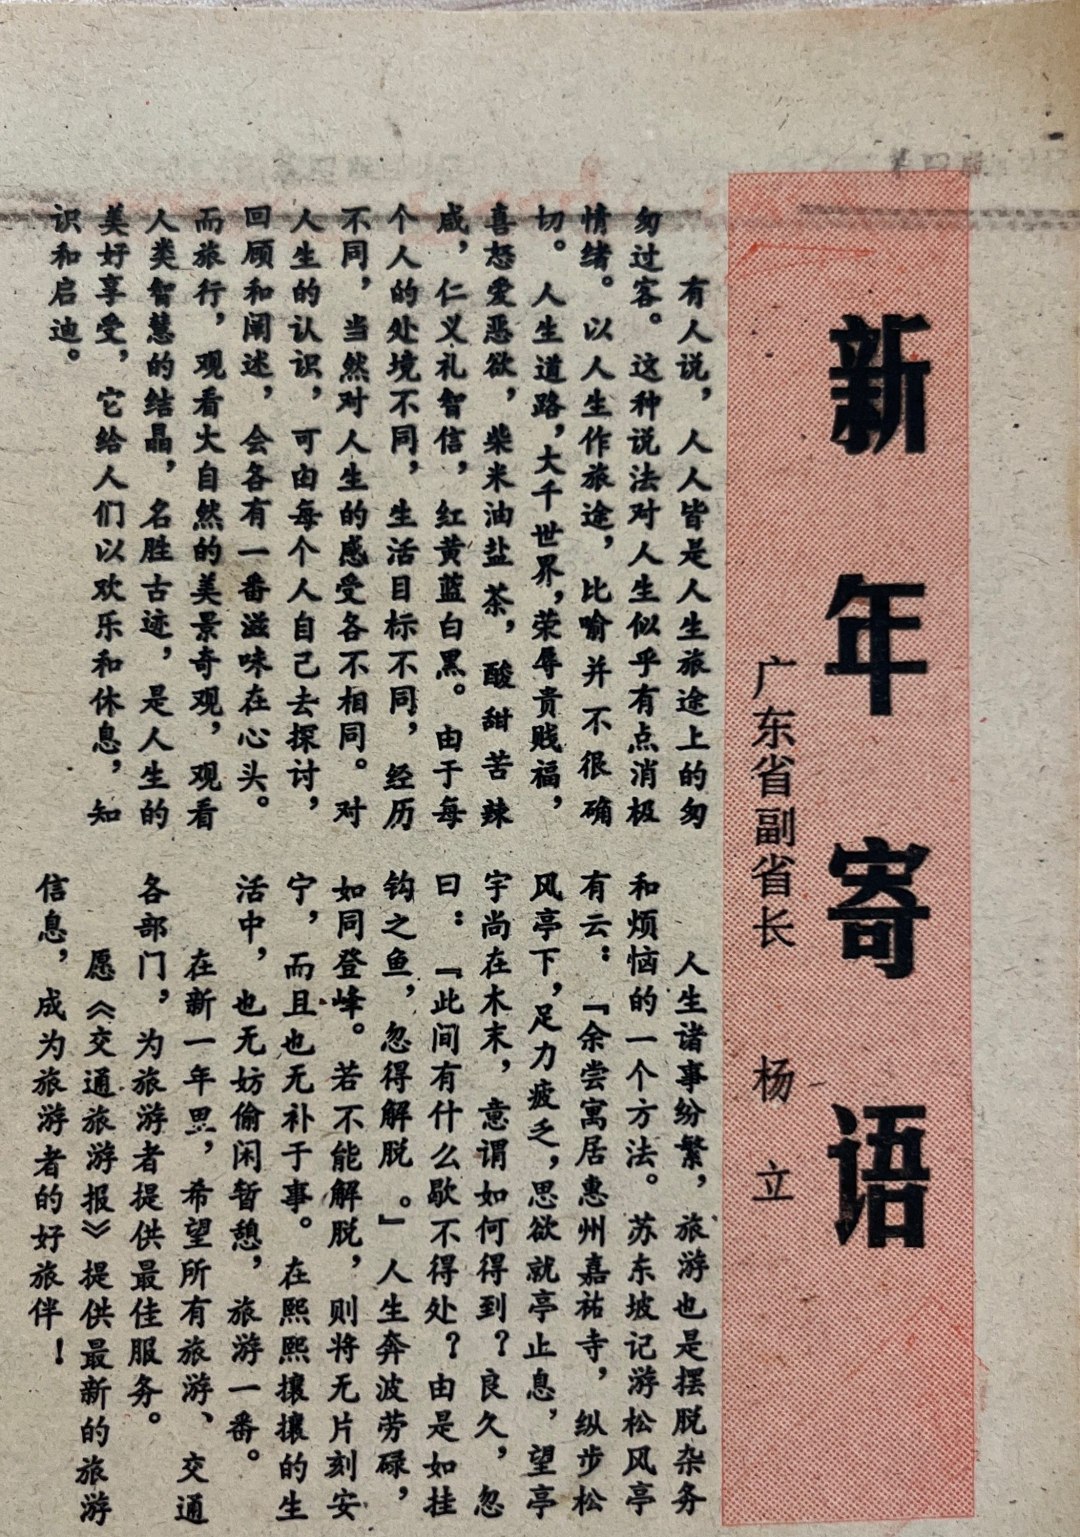 新年寄语
广东省副省长 杨立
有人说，人人皆是人生旅途上的匆
匆过客。这种说法对人生似乎有点消极
情绪。以人生作旅途，比喻并不很确
切。人生道路，大千世界，荣辱贵贱福，
喜怒爱恶欲，柴米油盐茶，酸甜苦辣
咸，仁义礼智信，红黄蓝白黑。由于每
个人的处境不同，生活目标不同，经历
不同，当然对人生的感受各不相同。对
人生的认识，可由每个人自己去探讨，
回顾和阐述，会各有一番滋味在心头。
而旅行，观看大自然的美景奇观，观看
人类智慧的结晶，名胜古迹，是人生的
美好享受，它给人们以欢乐和休息，知
识和启迪。
人生诸事纷繁，旅游也是摆脱杂务
和烦恼的一个方法。苏东坡记游松风亭
有云：『余尝寓居惠州嘉祐寺，纵步松
风亭下，足力疲乏，思欲就亭止息，望亭
宇尚在木末，意谓如何得到？良久，忽
曰：『此间有什么歇不得处？由是如挂
钩之鱼，忽得解脱。』人生奔波劳碌，
如同登峰。若不能解脱，则将无片刻安
宁，而且也无补于事。在熙熙攘攘的生
活中，也无妨偷闲暂憩，旅游一番。
在新一年里，希望所有旅游、交通
各部门，为旅游者提供最佳服务。
愿《交通旅游报》提供最新的旅游
信息，成为旅游者的好旅伴！